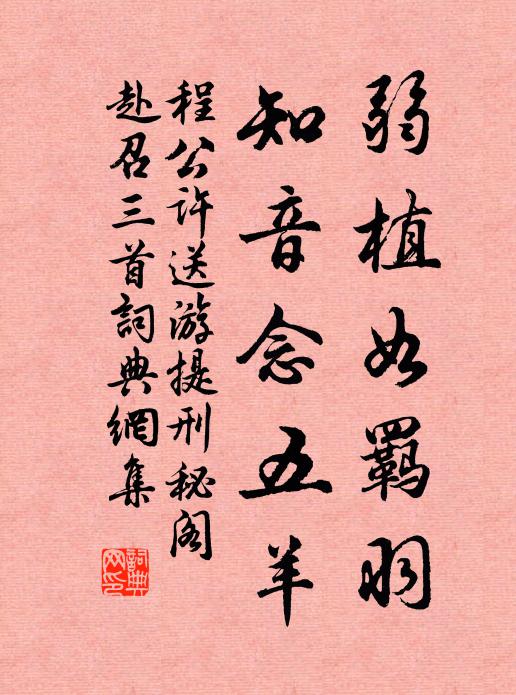 弱植如羁羽
知音念五羊
程公許送游提刑秘阁
赴召三首詞典網集
詞典網印